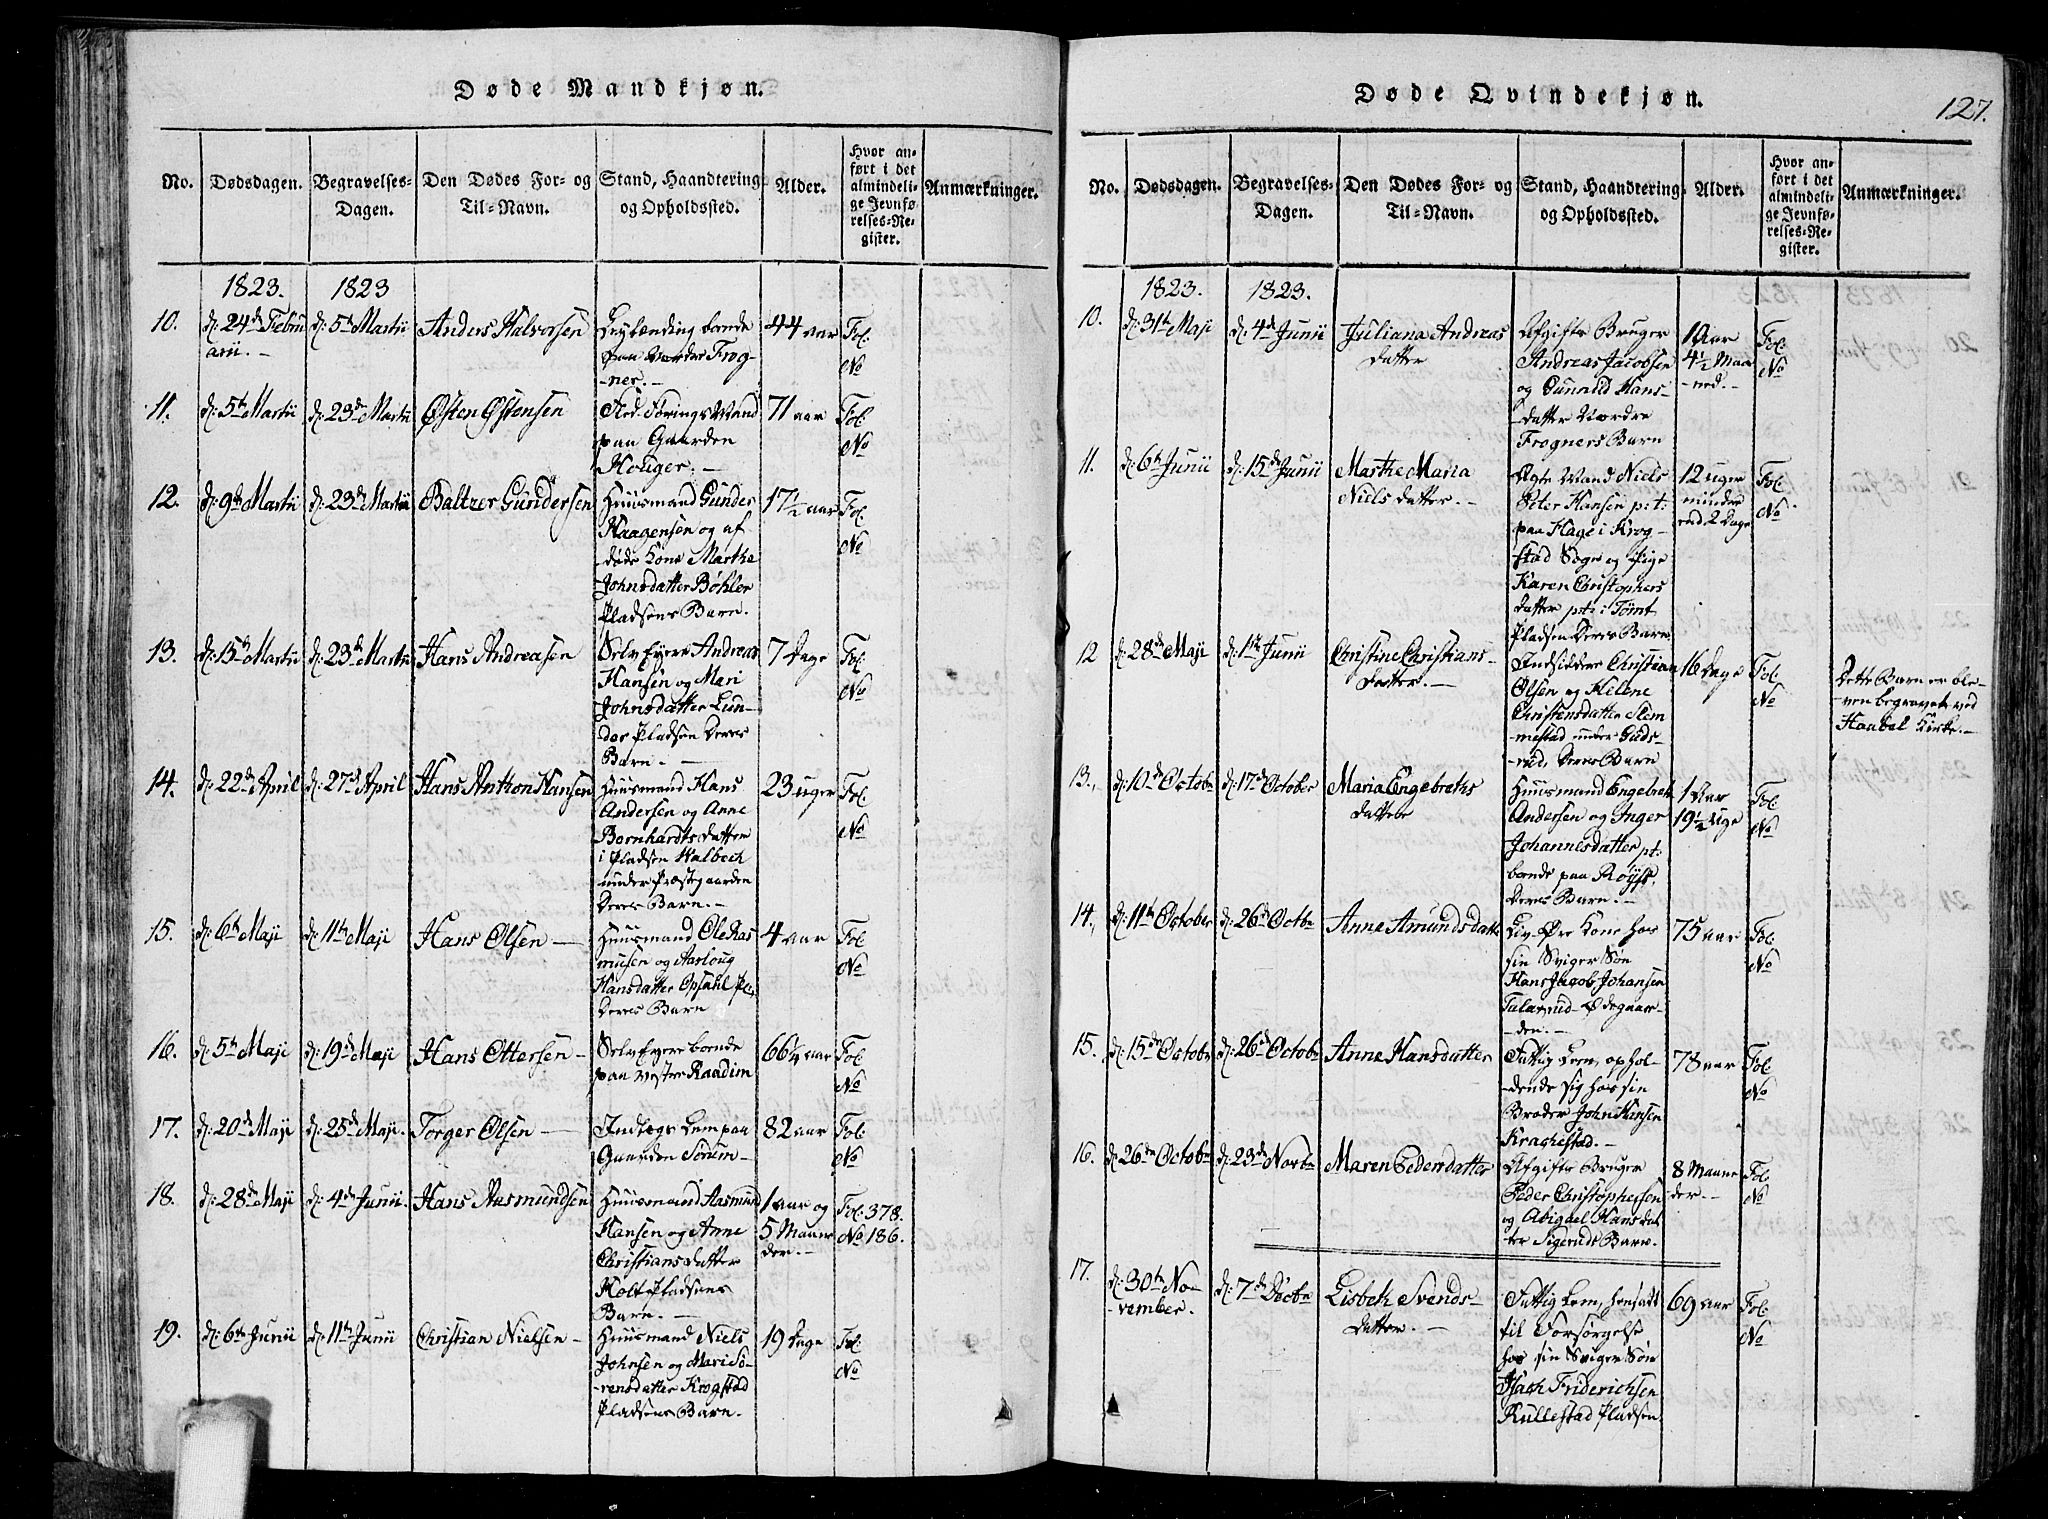 Døde Mandkjøn.
No.
Dødsdagen.
Begravelses-
Dagen.
Den Dødes For- og
Til-Navn.
Stand, Haandtering
og Opholdssted.
Alder.
Hvor an-
ført i det
almindeli-
ge Jevnfø-
relses-Re-
gister.
Anmærkninger.
1823.
1823
10.
d: 24de Febru
arii.-
d: 5te Martii
Anders Halvorsen
Leylænding boende
paa Nordre Frog-
-ner.-
44 aar
Fol.
No
11.
d: 5te Martii
d: 23de Martii
Østen Østensen
Fød. Førings Mand
paa Gaarden
Houger.-
71 aar
Fol.
No
12.
d: 9de Martii
d: 23de Martii
Baltzer Gundersen
Huusmand Gunder
Haagensen og af
døde Kone Marthe
Johnsdatter Bøhler
Pladsens Barn.
17½ aar
Fol.
No
13.
d: 15de Martii
d: 23de Martii
Hans Andreasen
Selv Eyere Andreas
Hansen og Mari
Johnsdatter Lun-
der Pladsen Deres
Barn.-
7 Dage
Fol.
No
14.
d: 22de April
d: 27de April
Hans Anthon Hansen
Huusmand Hans
Andersen og Anne
Bernhardts datter
i Pladsen Walbech
under Præstegaarden
Deres Barn.-
23 uger
Fol.
No
15.
d: 6te Maji
d: 11te Maji
Hans Olsen-
Huusmand Ole Ras
musen og Aasloug
Hansdatter Opsahl Pl:
Deres Barn
4 aar
Fol
No
16.
d: 5te Maji
d: 19de Maji
Hans Ottersen-
Selv Eyere boende
paa vestre Raadim
66¼ aar
Fol
No
17.
d: 20de Maji
d: 25de Maji.
Torger Olsen-
Indtægts Lem paa
Gaarden Sørum-
82 aar
Fol.
No
18.
d: 28de Maji
d: 4de Junii.
Hans Aasmundsen
Huusmand Aasmund
Hansen og Anne
Christians datter
Holt Pladsens
Barn.-
1 aar og
5 Maane
der.-
Fol. 378.
No 186.
19.
d: 6te Junii
d: 11te Junii
Christian Nielsen-
Huusmand Niels
Johnsen og Mari Sö-
-rensdatter Krogstad
Pladsens Barn.
19 Dage
Fol.
No
Døde Qvindekjøn.
127.
No.
Dødsdagen.
Begravelses-
Dagen.
Den Dødes For- og
Til-Navn.
Stand, Haandtering
og Opholdssted.
Alder.
Hvor an-
ført i det
almindeli-
ge Jevnfø-
relses-Re-
gister.
Anmærkninger.
1823.
1823.
10.
d: 31te Maji
d: 4de Junii
Juliana Andreas
datter
Afgifts Bruger
Andreas Jacobsen
og Gunnild Hans-
datter Nordre
Frogners Barn
1 Aar
4½ Maa
-ned.-
Fol.
No
11.
d: 6te Junii
d: 15de Junii
Marthe Maria
Niels datter.-
Ægte Mand Niels
Peter Hansen p:t:
paa Hage i Krog-
stad Sogn og Pige
Karen Christophers
datter p:t: i Tømt
Pladsen Deres Barn
12 uger
mindre
end 2 Dage
Fol.
No
12
d: 28de Maji
d: 1te Junii
Christine Christians-
datter.-
Indsiddere Christian
Olsen og Helene
Christensdatter Slem
mestad under Guds-
-rud Deres Barn
16 Dage
Fol.
No
Dette Barn er ble-
ven begravet ved
Haabel Kirke.-
13.
d: 10de Octobr
d: 17de October
Maria Engebreths
datter
Huusmand Engebret
Andersen og Inger
Johannesdatter pt:
boende paa Röys.
Deres Barn.-
1 Aar
19½ Uge
Fol.
No
14.
d: 11te October
d: 26de Octbr
Anne Amunds datter
Liv-Øre Kone hos
sin Sviger Søn
Hans Jacob Johansen
Talarud-Ødegaar-
-den.-
75 aar
Fol.
No
15.
d: 15de Octobr
d: 26de Octobr
Anne Hansdatter
Fattig Lem, ophol-
dende sig hos sin
Broder John Hansen
Kraghestad.-
78 aar
Fol.
No
16.
d: 26de Octobr
d: 23de Novbr
Maren Pedersdatter
Afgifts Bruger
Peder Christophersen
og Abigael Hans dat
ter Sigeruds Barn.
8 Maane
der.-
Fol.
No
17.
d: 30te No-
-vember.
d: 7de Decbr
Lisbeth Svends-
datter.-
Fattig Lem, hensadt
til Forsörgelse
hos sin Sviger Søn
Isach Friderichsen
Kullestad Pladsen
69 aar
Fol.
No